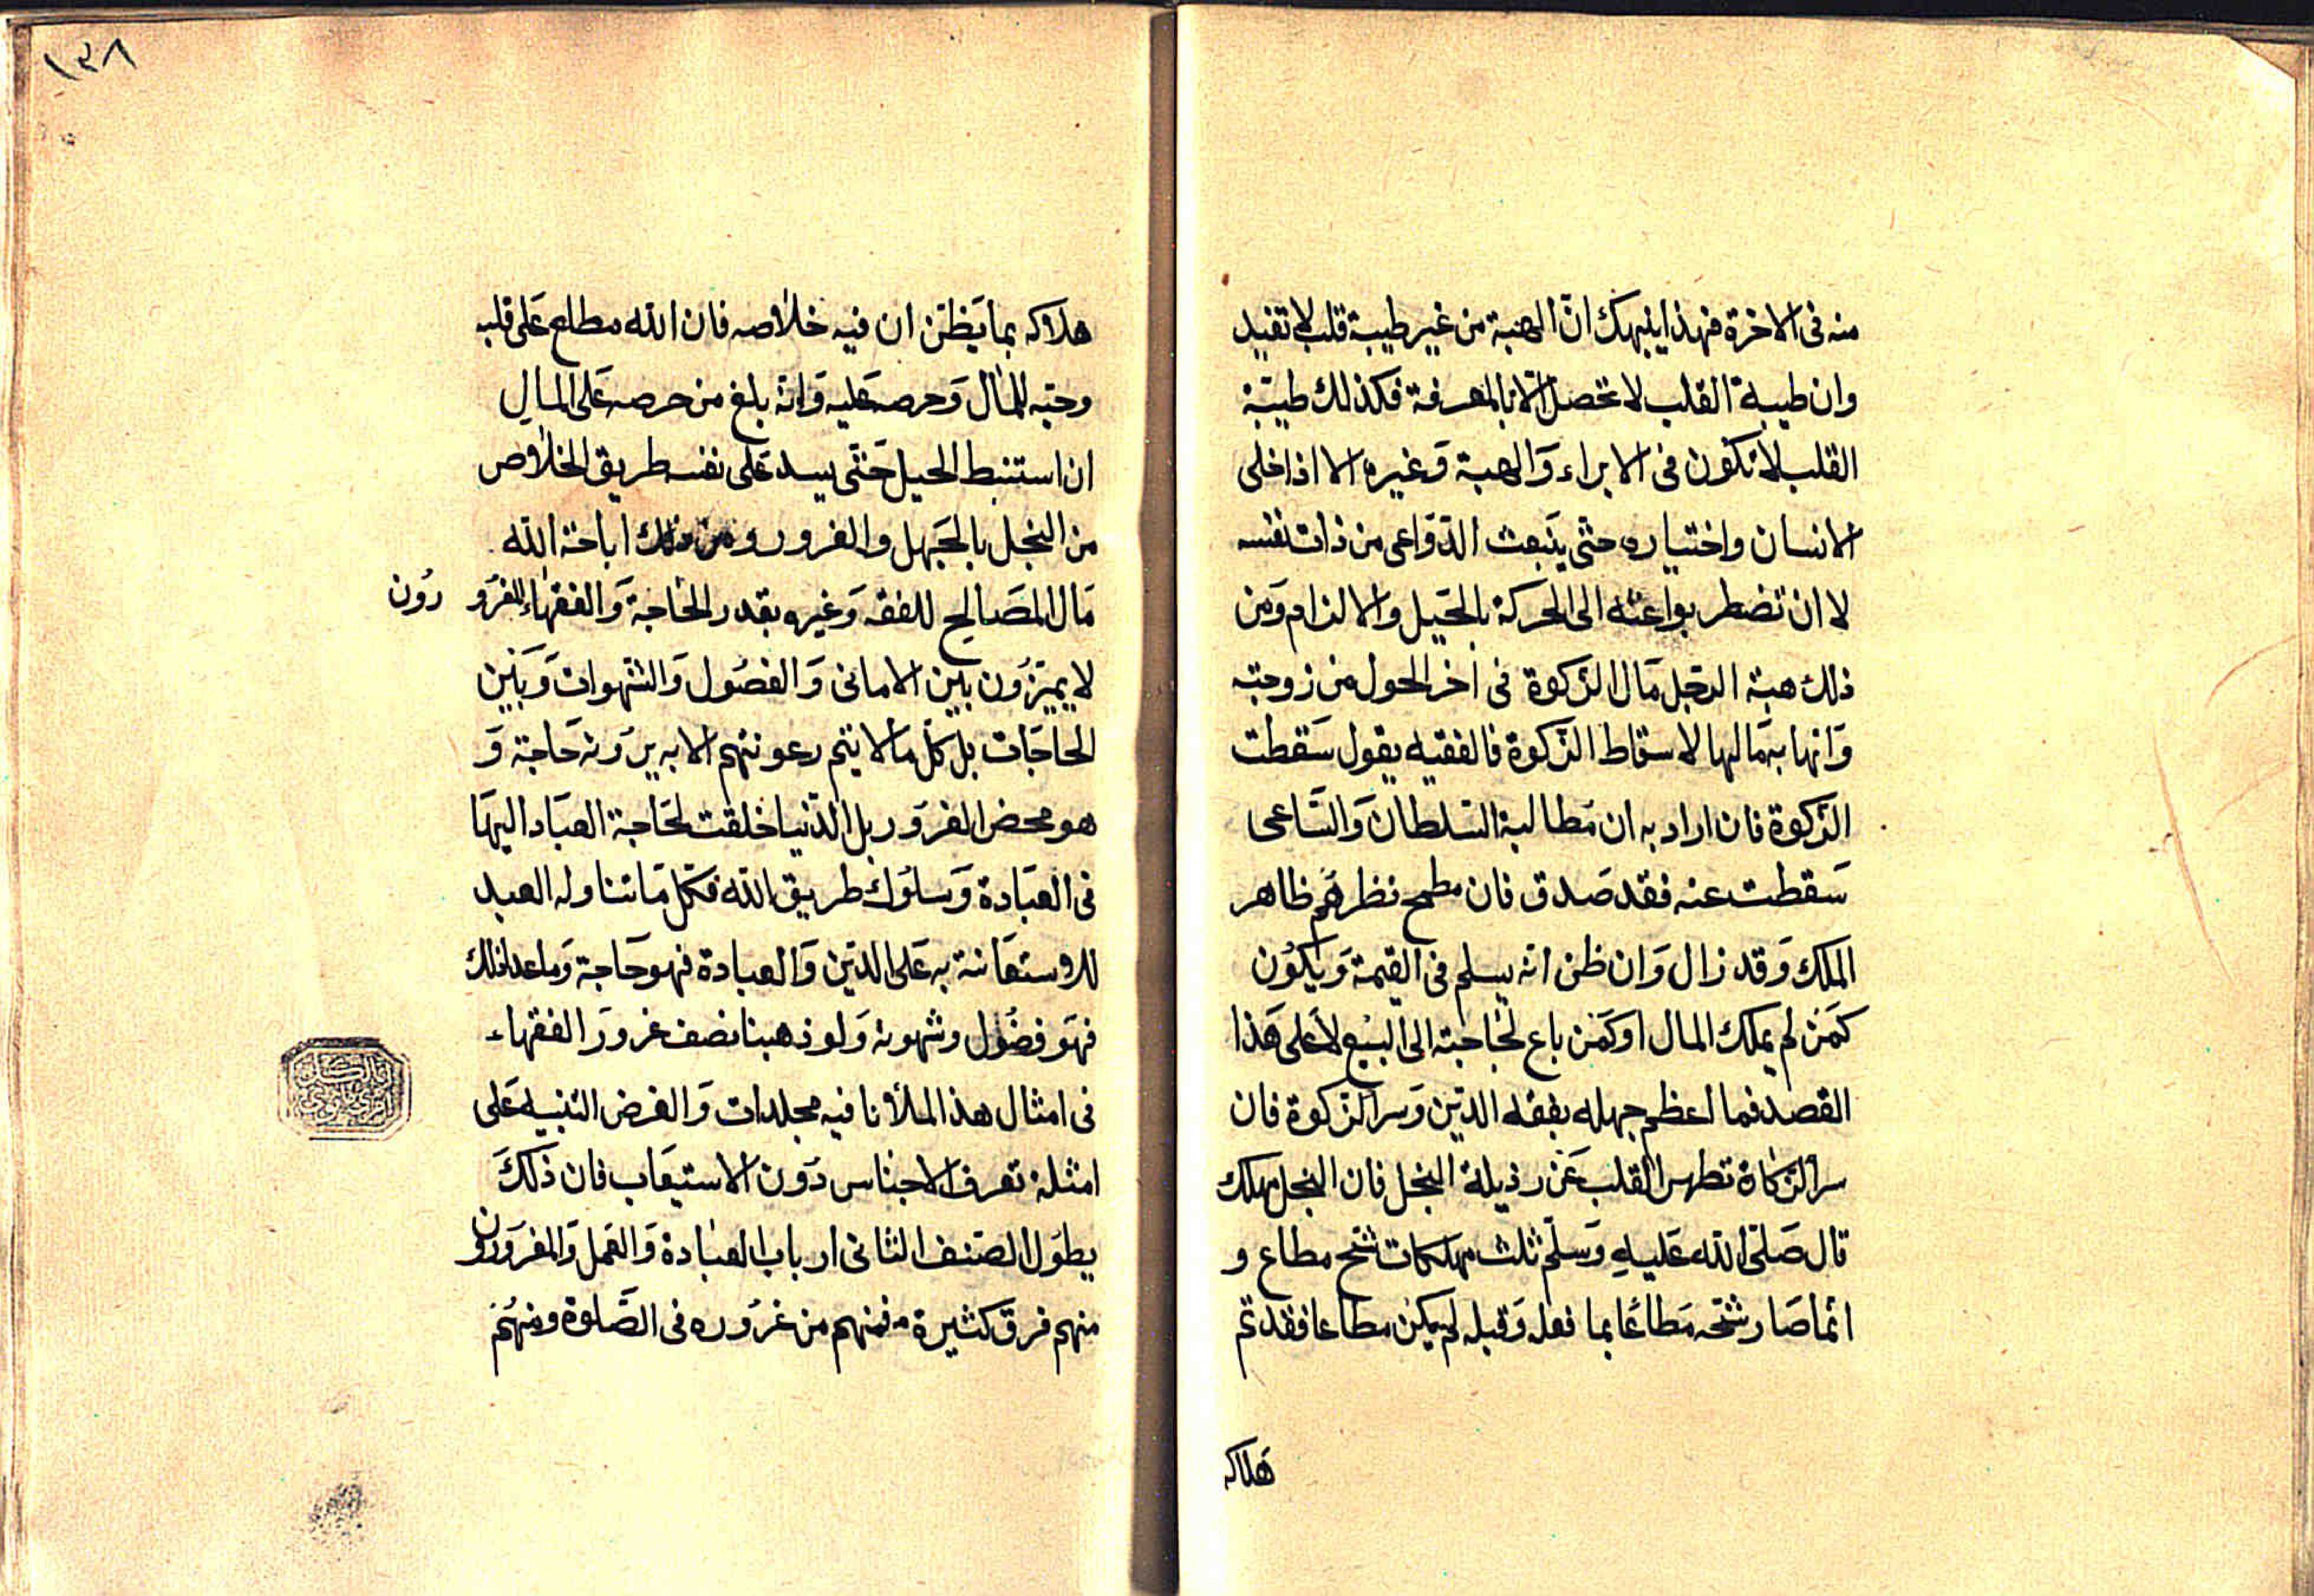 منه فى الاخرة فهذا ينبهك انّ الهبة من غير طيبة قلب لا تفيد
وان طيبة القلب لا تحصل الّا بالمعرفة فكذلك طيبة
القلب لا تكون فى الابراء وَالهبة وَغيره الا اذا خلى
الانسان واختياره حتّى ينبعث الدّوَاعى من ذات نفسه
لا ان تضطر بواعثه الى الحركة بالحيَل والالزام وَمن
ذلك هبة الرّجل مَال الزّكوة فى اخر الحول من زوجته
وَاتهابه مَالها لاسقاط الزّكوة فالفقيه يقول سَقطت
الزّكوة فان اراد به ان مَطالبة السّلطان وَالسّاعى
سَقطت عنه فقد صَدق فان مطمح نظرهَم ظاهر
الملك وَقد زال وَان ظن انه يسلم فى القيمة وَيكوُن
كمَن لم يملك المال اوكمَن باع لحَاجته الى البيَع لا عَلى هَذا
القصد فما اعظم جهله بفقه الدّين وَسر الزّكوة فان
سر الزّكاة تطهير القلب عَن رذيلة البخل فان البخل مهلك
قال صَلىّ الله عَليهِ وَسَلمّ ثلث مهلكات شح مطاع و
انمّا صَار شحّه مَطاعًا بما فعله وَقبله لم يكن مطاعا فقد تم
هَلاكه
١٣٨
هلاكه بما يَظنّ ان فيه خلاصه فان الله مطلع عَلى قلبه
وحبّه للمَال وَحرصه عَليه وَانّه بلغ من حرصه عَلى المالِ
ان استنبط الحيل حَتّى يسد عَلى نفسه طريق الخلاص
من البخل بالجَهل والغرور ومن ذلك اباحة الله
مَال المصَالح للفقه وَغيره بقدر الحَاجة وَالفقهَاء المغرُو رُون
لا يميّزُون بيَن الامانى وَالفضُول وَالشّهوات وَبيَن
الحاجَات بل كلّ ما لا يتم رعونتهم الا به يرَونه حَاجة وَ
هو محض الغروَر بل الدّنيا خلقت لحَاجة العبَاد اليهَا
فى العبَادة وَسلوُك طريق الله فكلّ مَا تناوله العبد
للاستعَانة به عَلى الدّين وَالعبادة فهو حَاجة وَما عدا ذلك
فهوَ فضُول وشهوة وَلو ذهبنا نصف غرورَ الفقهاء
فى امثال هذا لملأنا فيه مجلدات وَالغرض التنبيه عَلى
امثلة تعرف الاجناس دوَن الاستيعَاب فان ذَلكَ
يطوَل الصّنف الثانى ارباب العبَادة وَالعَمل وَالمغروَرون
منهم فرق كثيرة فمنهم من غرُوره فى الصَّلوة ومنهُم